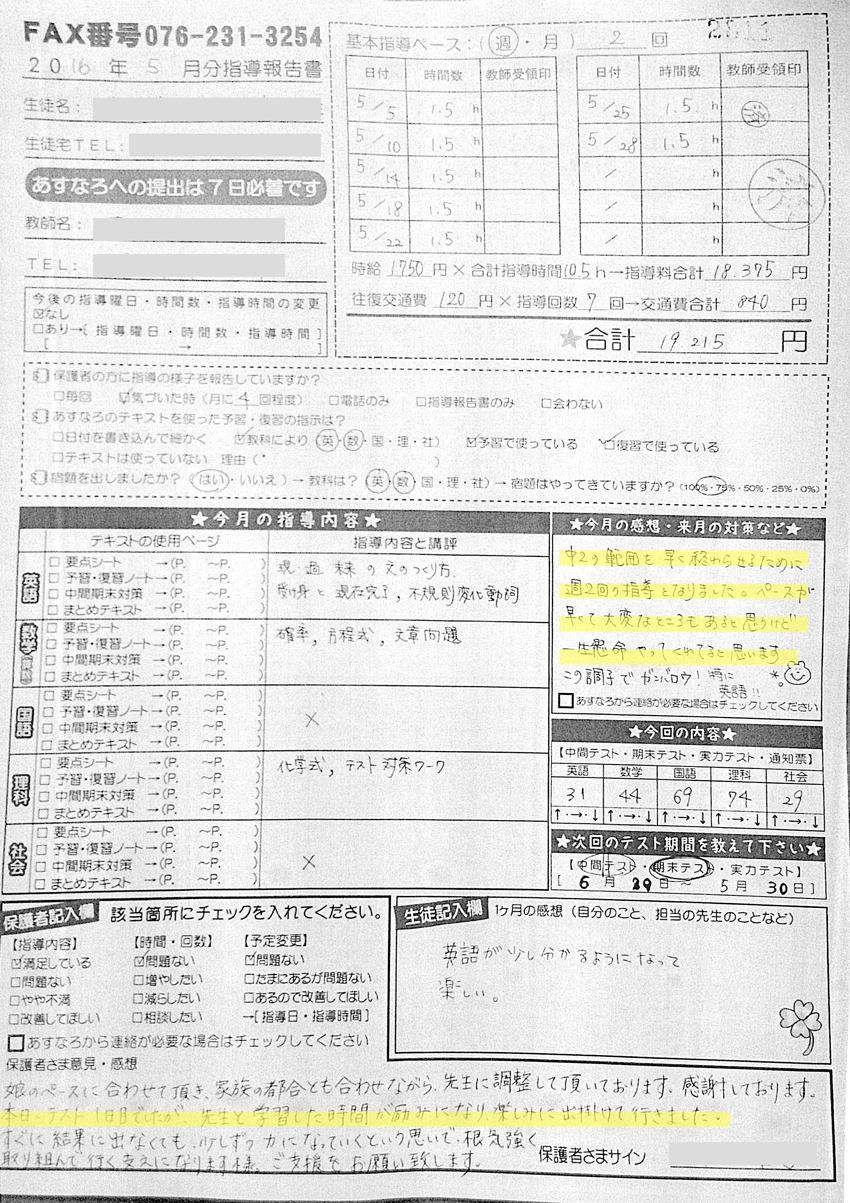 FAX番号076-231-3254
2016年5月分指導報告書
生徒名：
生徒宅TEL：
あすなろへの提出は7日必着です
教師名：
TEL：
今後の指導曜日・時間数・指導時間の変更
☑なし
□あり→[指導曜日・時間数・指導時間]
[ → ]
基本指導ペース：(週・月) 2 回
日付 時間数 教師受領印 日付 時間数 教師受領印
5/5 1.5 h 5/25 1.5 h
5/10 1.5 h 5/28 1.5 h
5/14 1.5 h / h
5/18 1.5 h / h
5/22 1.5 h / h
時給 1750 円×合計指導時間 10.5 h→指導料合計 18.375 円
往復交通費 120 円×指導回数 7 回→交通費合計 840 円
★合計 19215 円
保護者の方に指導の様子を報告していますか？
□毎回 ☑気づいた時(月に 4 回程度) □電話のみ □指導報告書のみ □会わない
あすなろのテキストを使った予習・復習の指示は？
□日付を書き込んで細かく ☑教科により(英・数・国・理・社) ☑予習で使っている ☑復習で使っている
□テキストは使っていない 理由( )
宿題を出しましたか？(はい・いいえ)→教科は？(英・数・国・理・社)→宿題はやってきていますか？(100%・75%・50%・25%・0%)
★今月の指導内容★
テキストの使用ページ 指導内容と講評
英語
□要点シート →(P. ～P. )
□予習・復習ノート→(P. ～P. )
□中間期末対策 →(P. ～P. )
□まとめテキスト →(P. ～P. )
現・過・未来の文のつくり方.
受け身と現在完了, 不規則変化動詞
数学
□要点シート →(P. ～P. )
□予習・復習ノート→(P. ～P. )
□中間期末対策 →(P. ～P. )
□まとめテキスト →(P. ～P. )
確率, 方程式, 文章問題
国語
□要点シート →(P. ～P. )
□予習・復習ノート→(P. ～P. )
□中間期末対策 →(P. ～P. )
□まとめテキスト →(P. ～P. )
×
理科
□要点シート →(P. ～P. )
□予習・復習ノート→(P. ～P. )
□中間期末対策 →(P. ～P. )
□まとめテキスト →(P. ～P. )
化学式, テスト対策ワーク
社会
□要点シート →(P. ～P. )
□予習・復習ノート→(P. ～P. )
□中間期末対策 →(P. ～P. )
□まとめテキスト →(P. ～P. )
×
★今月の感想・来月の対策など★
中2の範囲を早く終わらせるために
週2回の指導となりました。ペースが
早くて大変なところもあると思うけど
一生懸命やってくれてると思います
この調子でガンバロウ！特に
英語!!
□あすなろから連絡が必要な場合はチェックしてください
★今回の内容★
【中間テスト・期末テスト・実力テスト・通知票】
英語 数学 国語 理科 社会
31 44 69 74 29
↑・→・↓ ↑・→・↓ ↑・→・↓ ↑・→・↓ ↑・→・↓
★次回のテスト期間を教えて下さい★
【中間テスト・期末テスト・実力テスト】
[ 6月 29日～ 5月 30日]
保護者記入欄 該当箇所にチェックを入れてください。
【指導内容】 【時間・回数】 【予定変更】
☑満足している ☑問題ない ☑問題ない
□問題ない □増やしたい □たまにあるが問題ない
□やや不満 □減らしたい □あるので改善してほしい
□改善してほしい □相談したい →[指導日・指導時間]
□あすなろから連絡が必要な場合はチェックしてください
生徒記入欄 1ヶ月の感想(自分のこと、担当の先生のことなど)
英語が少し分かるようになって
楽しい。
保護者さま意見・感想
娘のペースに合わせて頂き、家族の都合とも合わせながら、先生に調整して頂いております。感謝しております。
本日、テスト1日目でしたが、先生と学習した時間が励みになり、楽しみに出掛けて行きました。
すぐに結果に出なくても、少しずつ力になっていくという思いで、根気強く
取り組んで行く支えになります様、ご支援をお願い致します。
保護者さまサイン